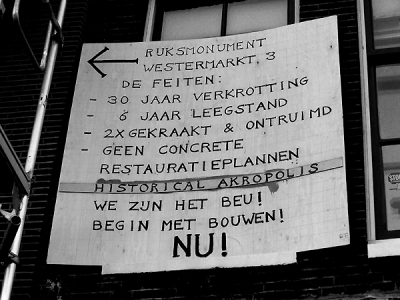 RIJKSMONUMENT
WESTERMARKT 3
DE FEITEN:
- 30 JAAR VERKROTTING
- 6 JAAR LEEGSTAND
- 2X GEKRAAKT & ONTRUIMD
- GEEN CONCRETE
RESTAURATIEPLANNEN
HISTORICAL AKROPOLIS
WE ZIJN HET BEU!
BEGIN MET BOUWEN!
NU!